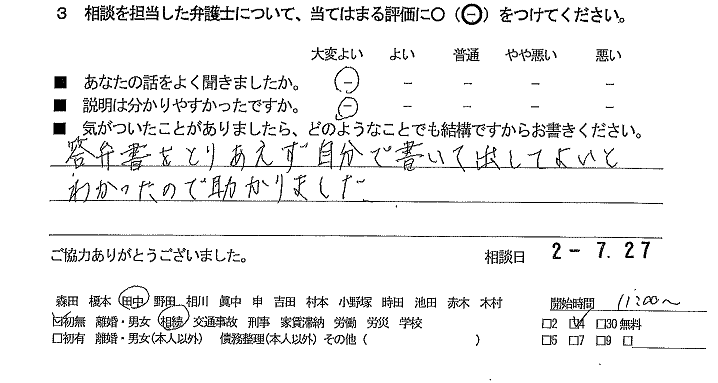 3 相談を担当した弁護士について、当てはまる評価に○（⊖）をつけてください。
大変よい よい 普通 やや悪い 悪い
■ あなたの話をよく聞きましたか。 － － － － －
■ 説明は分かりやすかったですか。 － － － － －
■ 気がついたことがありましたら、どのようなことでも結構ですからお書きください。
答弁書をとりあえず自分で書いて出してよいと
わかったので助かりました
ご協力ありがとうございました。 相談日 2-7.27
森田 榎本 田中 野田 相川 眞中 申 吉田 村本 小野塚 時田 池田 赤木 木村 開始時間 11:00～
☑初無 離婚・男女 相続 交通事故 刑事 家賃滞納 労働 労災 学校 □2 ☑4 □30 無料
□初有 離婚・男女(本人以外) 債務整理(本人以外) その他 ( ) □5 □7 □9 □